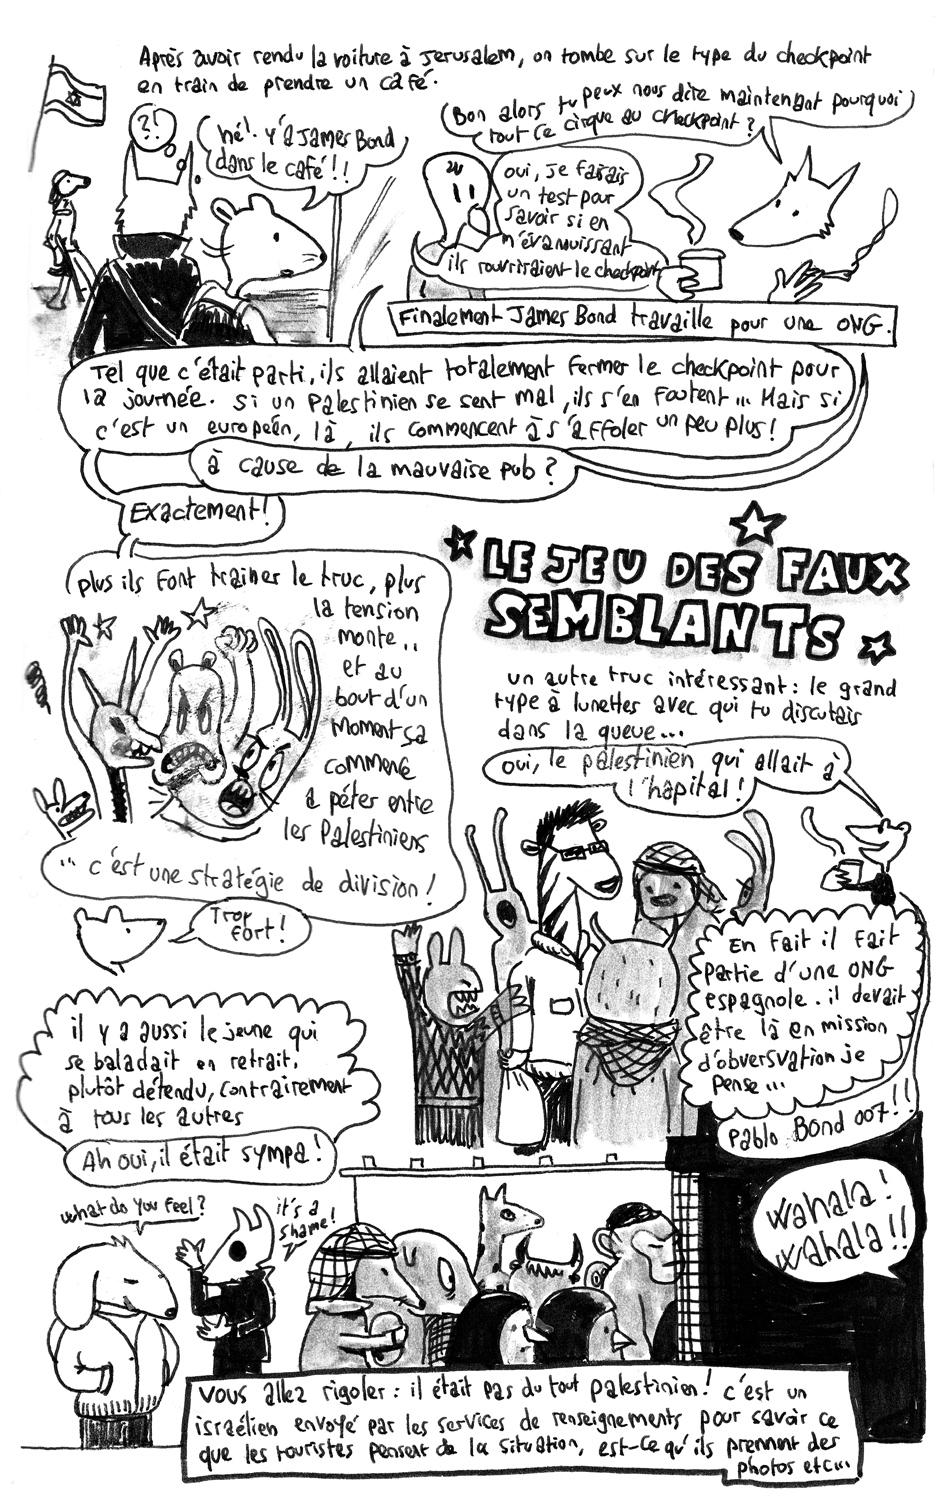 Après avoir rendu la voiture à Jerusalem, on tombe sur le type du checkpoint
en train de prendre un café.
?!
hé! Y'a James Bond
dans le café!!
Bon alors tu peux nous dire maintenant pourquoi
tout ce cirque au checkpoint?
oui, je faisais
un test pour
savoir si en
m'évanouissant
ils rouvriraient le checkpoint
Finalement James Bond travaille pour une ONG.
Tel que c'était parti, ils allaient totalement fermer le checkpoint pour
la journée. Si un Palestinien se sent mal, ils s'en foutent... Mais si
c'est un européen, là, ils commencent à s'affoler un peu plus!
à cause de la mauvaise pub?
Exactement!
plus ils font traîner le truc, plus
la tension
monte..
et au
bout d'un
moment ça
commence
a péter entre
les Palestiniens
... c'est une stratégie de division!
Trop
fort!
LE JEU DES FAUX
SEMBLANTS
un autre truc intéressant: le grand
type à lunettes avec qui tu discutais
dans la queue...
oui, le palestinien qui allait à
l'hapital!
En fait il fait
partie d'une ONG
espagnole. il devait
être là en mission
d'obversvation je
pense...
Pablo Bond 007!!
il y a aussi le jeune qui
se baladait en retrait,
plutôt détendu, contrairement
à tous les autres
Ah oui, il était sympa!
what do you feel?
it's a
shame!
Wahala!
Wahala!!
Vous allez rigoler: il était pas du tout palestinien! c'est un
israélien envoyé par les services de renseignements pour savoir ce
que les touristes pensent de la situation, est-ce qu'ils prennent des
photos etc...